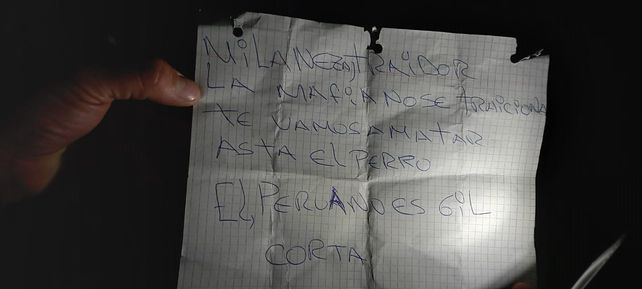 MILANEZA TRAIDOR
LA MAFIA NO SE TRAICIONA
TE VAMOS A MATAR
ASTA EL PERRO
EL, PERUANO ES GIL
CORTA